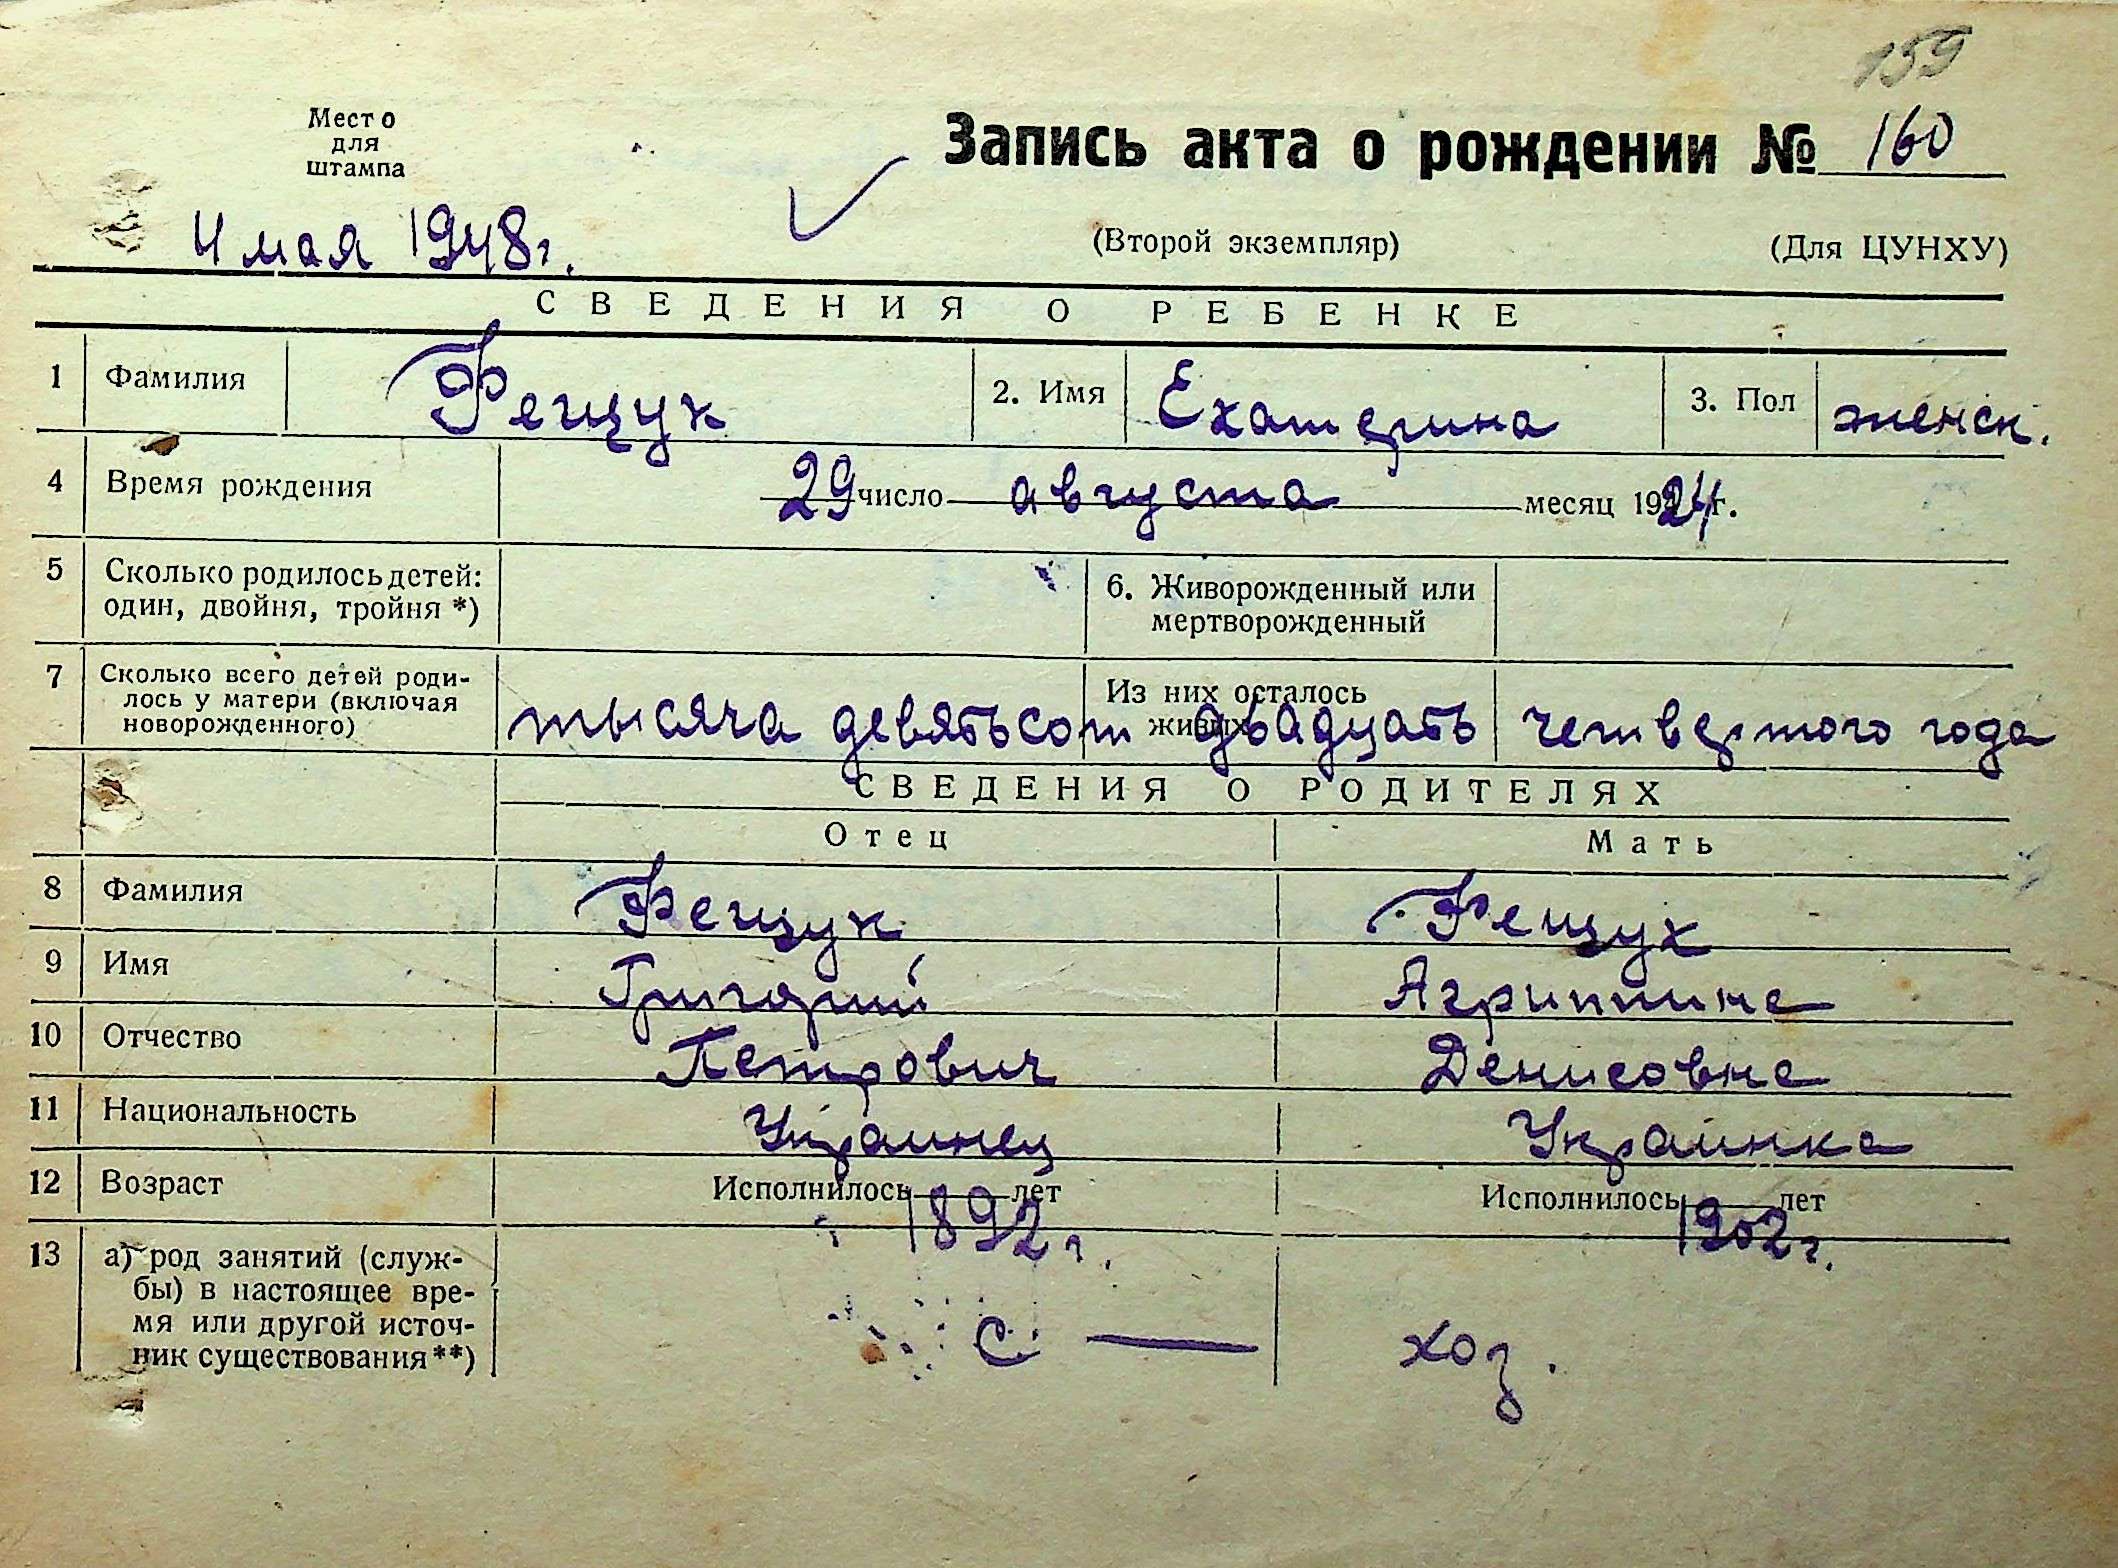 159
Место
для
штампа
Запись акта о рождении № 160
4 мая 1948 г.
(Второй экземпляр)
(Для ЦУНХУ)
СВЕДЕНИЯ О РЕБЕНКЕ
1 Фамилия Фещук 2. Имя Екатерина 3. Пол женск.
4 Время рождения 29 число августа месяц 1924 г.
5 Сколько родилось детей: 6. Живорожденный или
один, двойня, тройня *) мертворожденный
7 Сколько всего детей роди- Из них осталось
лось у матери (включая живых
новорожденного)
тысяча девятьсот двадцать четвертого года
СВЕДЕНИЯ О РОДИТЕЛЯХ
Отец Мать
8 Фамилия Фещук Фещук
9 Имя Григорий Агриппина
10 Отчество Петрович Денисовна
11 Национальность Украинец Украинка
12 Возраст Исполнилось лет Исполнилось лет
1892 г. 1902 г.
13 а) род занятий (служ-
бы) в настоящее вре-
мя или другой источ-
ник существования **)
с — хоз.